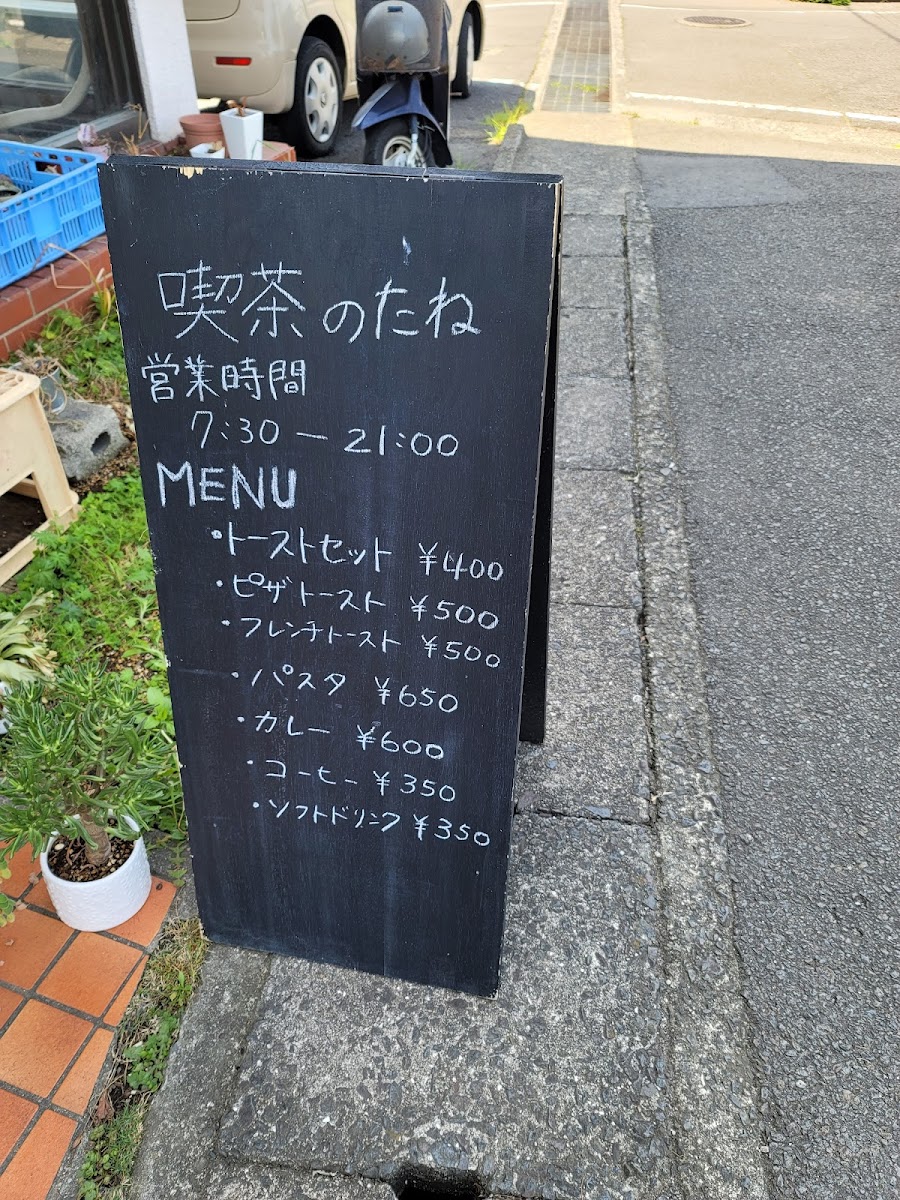 喫茶のたね
営業時間
7:30ー21:00
MENU
・トーストセット ¥400
・ピザトースト ¥500
・フレンチトースト ¥500
・パスタ ¥650
・カレー ¥600
・コーヒー ¥350
・ソフトドリンク ¥350